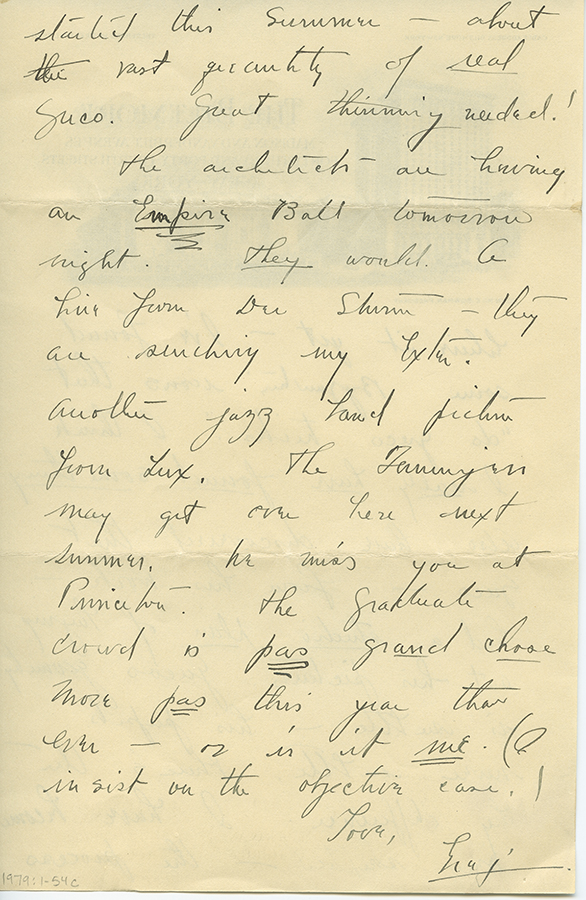 started this summer — about
the vast quantity of real
Great thinning needed!
The architects are having
an Empire Ball tomorrow
night. They would. A
line from — they
are sending my Exter.
Another jazz band picture
from Lux. The
may get over here next
summer. We miss you at
Princeton. The graduate
crowd is pas grand chose
more pas this year than
ever — or is it me. (I
insist on the objective case.)
Love,
1979:1-54c